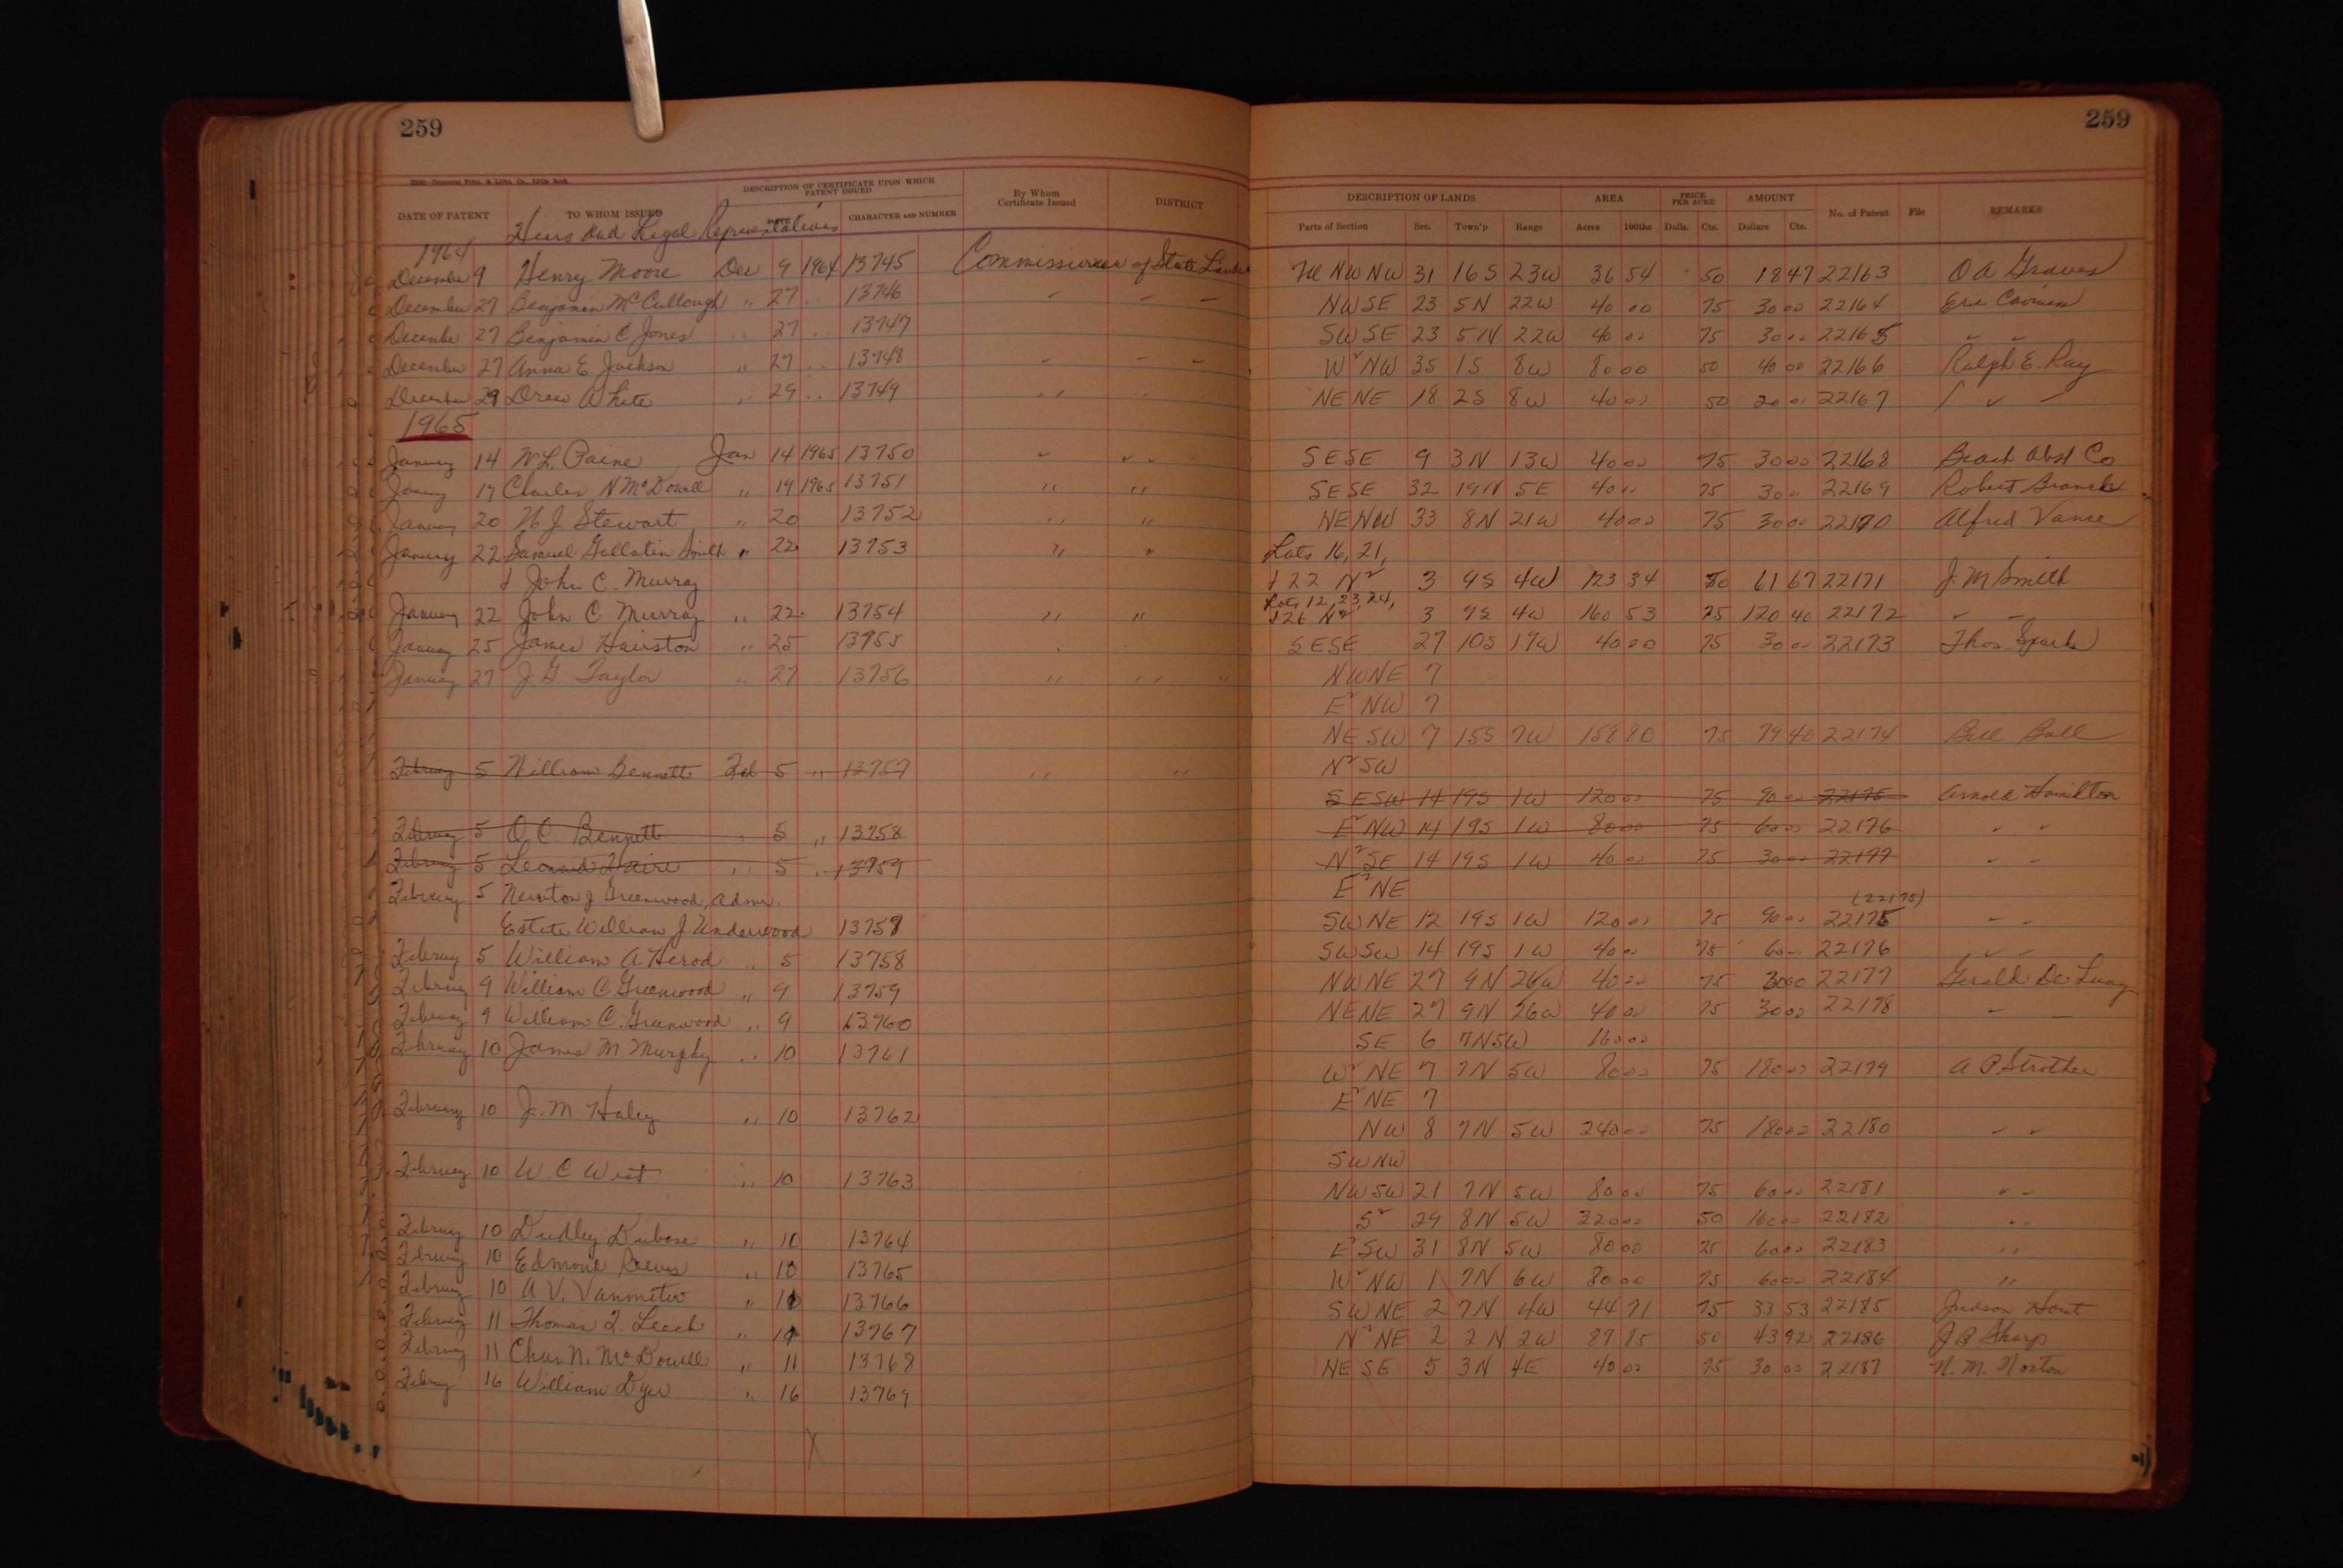 259
DATE OF PATENT
TO WHOM ISSUED
DESCRIPTION OF CERTIFICATE UPON WHICH PATENT ISSUED
DATE
CHARACTER AND NUMBER
By Whom Certificate Issued
DISTRICT
Heirs and Legal Representatives
1964
December 9 Henry Moore Dec 9 1964 13745 Commissioner of State Lands
December 27 Benjamin McCullough " 27 " 13746
December 27 Benjamin C Jones " 27 " 13747
December 27 Anna E. Jackson " 27 " 13748
December 29 Drew White " 29 " 13749
1965
January 14 W.L. Paine Jan 14 1965 13750
January 19 Charles N McDowell " 19 1965 13751
January 20 N. J. Stewart " 20 13752
January 22 Samuel Gallatin Smith " 22 13753
& John C. Murray
January 22 John C Murray " 22 13754
January 25 James Hairston " 25 13755
January 27 J. G. Taylor " 27 13756
February 5 William Bennett Feb 5 " 13757
February 5 O.C. Bennett " 5 " 13758
February 5 Leonard Haire " 5 " 13759
February 5 Newton J Greenwood, Admr.
Estate William J. Underwood 13757
February 5 William A. Herod " 5 13758
February 9 William C Greenwood " 9 13759
February 9 William C. Greenwood " 9 13760
February 10 James M. Murphy " 10 13761
February 10 J. M Haley " 10 13762
February 10 W. C West " 10 13763
February 10 Dudley Dubose " 10 13764
February 10 Edmond Reeves " 10 13765
February 10 A V. Vanmeter " 10 13766
February 11 Thomas L. Leech " 11 13767
February 11 Chas N. McDowell " 11 13768
February 16 William Dyer " 16 13769
259
DESCRIPTION OF LANDS
AREA
PRICE PER ACRE
AMOUNT
No. of Patent
File
REMARKS
Parts of Section
Sec.
Town'p
Range
Acres
100ths
Dolls.
Cts.
Dollars
Cts.
NW NW 31 16S 23W 36 54 50 18 47 22163 O A Graves
NWSE 23 5N 22W 40 00 75 30 00 22164
SWSE 23 5N 22W 40 00 75 30 00 22165 " "
W2 NW 35 1S 8W 80 00 50 40 00 22166 Ralph E. Ray
NENE 18 2S 8W 40 00 50 20 00 22167 " "
SESE 9 3N 13W 40 00 75 30 00 22168 Beach Abst Co
SESE 32 19N 5E 40 00 75 30 00 22169 Robert Branch
NENW 33 8N 21W 40 00 75 30 00 22170 Alfred Vance
Lots 16, 21,
& 22 N2 3 9S 4W 123 34 50 61 67 22171 J. M Smith
Lots 12, 23, 24,
& 26 N2 3 9S 4W 160 53 75 120 40 22172 " "
SESE 27 10S 17W 40 00 75 30 00 22173 Thos Sparks
NWNE 7
E2 NW 7
NE SW 7 15S 7W 158 80 75 79 40 22174 Bill Ball
N2 SW
SESW 14 19S 1W 120 00 75 90 00 22175 Arnold Hamilton
E2 NW 14 19S 1W 80 00 75 60 00 22176 " "
N2 SE 14 19S 1W 40 00 75 30 00 22177 " "
E2 NE
(22175)
SWNE 12 19S 1W 120 00 75 90 00 22175 " "
SWSW 14 19S 1W 40 00 75 60 00 22176 " "
NWNE 27 9N 26W 40 00 75 30 00 22177 Gerald De Lung
NENE 27 9N 26W 40 00 75 30 00 22178 " "
SE 6 7N 5W 160 00
W2 NE 7 7N 5W 80 00 75 180 00 22179 A P Strother
E2 NE 7
NW 8 7N 5W 240 00 75 180 00 22180 " "
SWNW
NWSW 21 7N 5W 80 00 75 60 00 22181 " "
S2 29 8N 5W 320 00 50 160 00 22182 " "
E2 SW 31 8N 5W 80 00 75 60 00 22183 "
W2 NW 1 7N 6W 80 00 75 60 00 22184 "
SWNE 2 7N 4W 44 71 75 33 53 22185 Judson Hout
N2 NE 2 2N 2W 87 85 50 43 92 22186 J. R Sharp
NE SE 5 3N 4E 40 00 75 30 00 22187 N. M. Norton